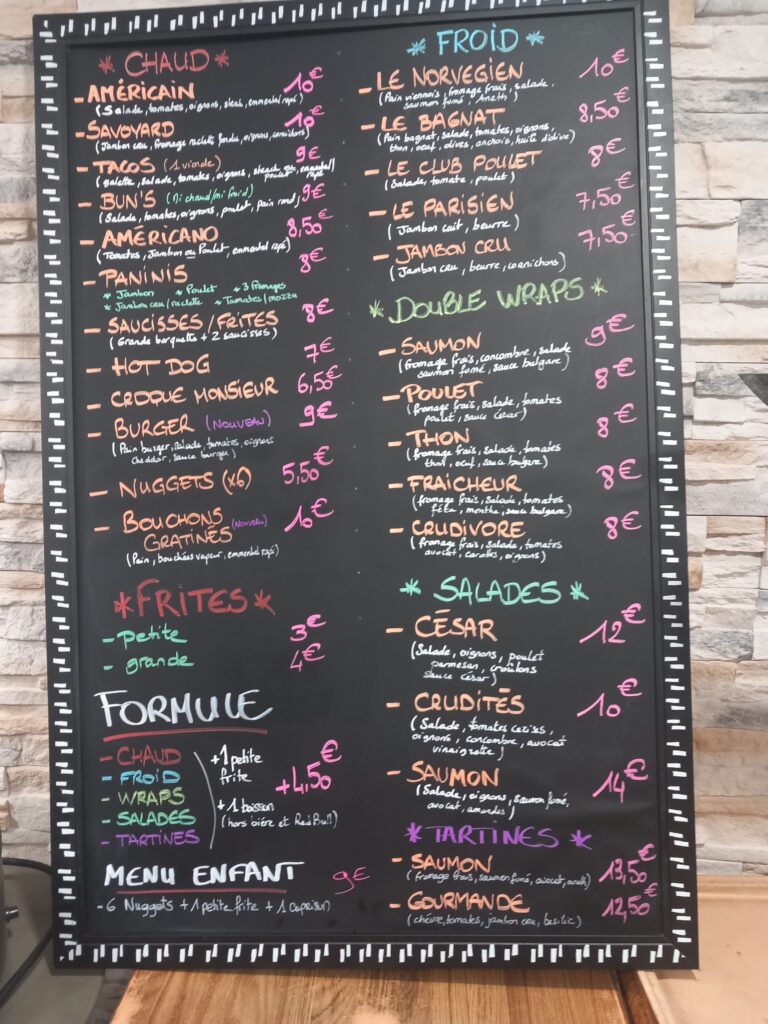 * CHAUD *
- AMÉRICAIN 10€
(Salade, tomates, oignons, steak, emmental rapé)
- SAVOYARD 10€
(Jambon cru, fromage raclette fondu, oignons, cornichons)
- TACOS (1 viande) 9€
(galette, salade, tomates, oignons, steak ou poulet, emmental rapé)
- BUN'S (mi chaud/mi froid) 9€
(Salade, tomates, oignons, poulet, pain rond)
- AMÉRICANO 8,50€
(Tomates, Jambon ou Poulet, emmental rapé)
- PANINIS 8€
* Jambon * Poulet * 3 Fromages
* Jambon cru/raclette * Tomates/mozza
- SAUCISSES/FRITES 8€
(Grande barquette + 2 saucisses)
- HOT DOG 7€
- CROQUE MONSIEUR 6,50€
- BURGER (NOUVEAU) 9€
(Pain burger, salade, tomates, oignons
cheddar, sauce burger)
- NUGGETS (x6) 5,50€
- BOUCHONS (NOUVEAU) 10€
GRATINÉS
(Pain, bouchées vapeur, emmental rapé)
* FRITES *
- petite 3€
- grande 4€
FORMULE
- CHAUD
- FROID
- WRAPS
- SALADES
- TARTINES
+ 1 petite
frite
+ 1 boisson
(hors bière et RedBull)
+4,50€
MENU ENFANT 9€
- 6 Nuggets + 1 petite frite + 1 caprison
* FROID *
- LE NORVEGIEN 10€
(Pain viennois, fromage frais, salade,
saumon fumé, Aneth)
- LE BAGNAT 8,50€
(Pain bagnat, salade, tomates, oignons,
thon, oeuf, olives, anchois, huile d'olive)
- LE CLUB POULET 8€
(Salade, tomate, poulet)
- LE PARISIEN 7,50€
(Jambon cuit, beurre)
- JAMBON CRU 7,50€
(Jambon cru, beurre, cornichons)
* DOUBLE WRAPS *
- SAUMON 9€
(fromage frais, concombre, salade
saumon fumé, sauce bulgare)
- POULET 8€
(fromage frais, salade, tomates
poulet, sauce césar)
- THON 8€
(fromage frais, salade, tomates
thon, oeuf, sauce bulgare)
- FRAÎCHEUR 8€
(fromage frais, salade, tomates
féta, menthe, sauce bulgare)
- CRUDIVORE 8€
(fromage frais, salade, tomates
avocat, carottes, oignons)
* SALADES *
- CÉSAR 12€
(Salade, oignons, poulet
parmesan, croûtons
sauce césar)
- CRUDITÉS 10€
(Salade, tomates cerises,
oignons, concombre, avocat
vinaigrette)
- SAUMON 14€
(Salade, oignons, saumon fumé,
avocat, amandes)
* TARTINES *
- SAUMON 13,50€
(fromage frais, saumon fumé, avocat, aneth)
- GOURMANDE 12,50€
(chèvre, tomates, jambon cru, basilic)